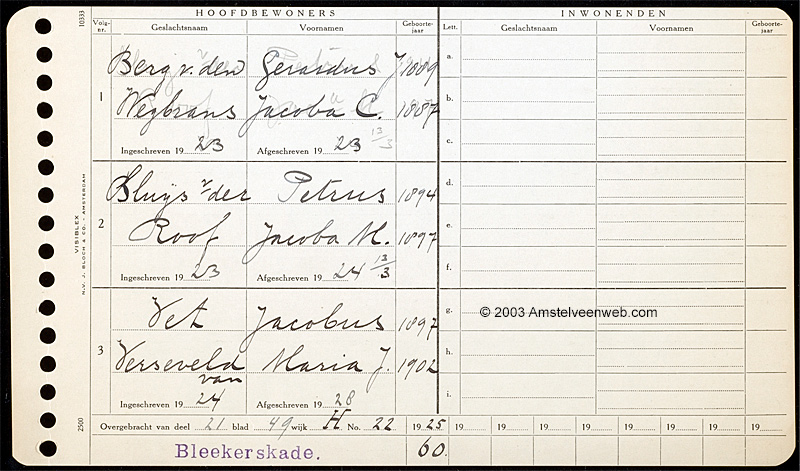 HOOFDBEWONERS INWONENDEN
Volg-nr. Geslachtsnaam Voornamen Geboorte-jaar Lett. Geslachtsnaam Voornamen Geboorte-jaar
10333
1
Berg v. den Gerardus J. 1889
Weybrans Jacoba C. 1887
Ingeschreven 19 23 Afgeschreven 19 23 13/3
a.
b.
c.
2
Sluijs v/der Petrus 1894
Roof Jacoba M. 1897
Ingeschreven 19 23 Afgeschreven 19 24 13/3
d.
e.
f.
VISIBLEX
N.V. J. BLOCH & CO. - AMSTERDAM
3
Vet Jacobus 1897
Verseveld van Maria J. 1902
Ingeschreven 19 24 Afgeschreven 19 28
g.
© 2003 Amstelveenweb.com
h.
i.
2500
Overgebracht van deel 21 blad 49 wijk H No. 22 19 25 19 19 19 19 19 19 19 19
Bleekerskade. 60.